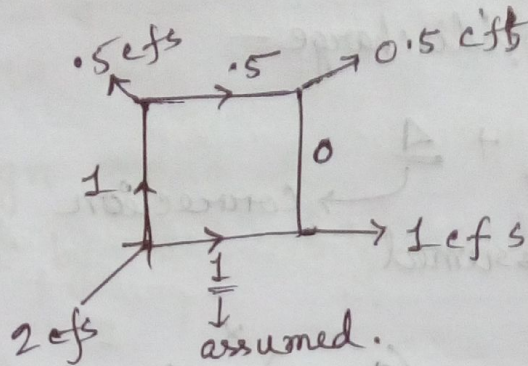 .5 cfs
.5
0.5 cfs
1
0
1 cfs
1
2 cfs
assumed.